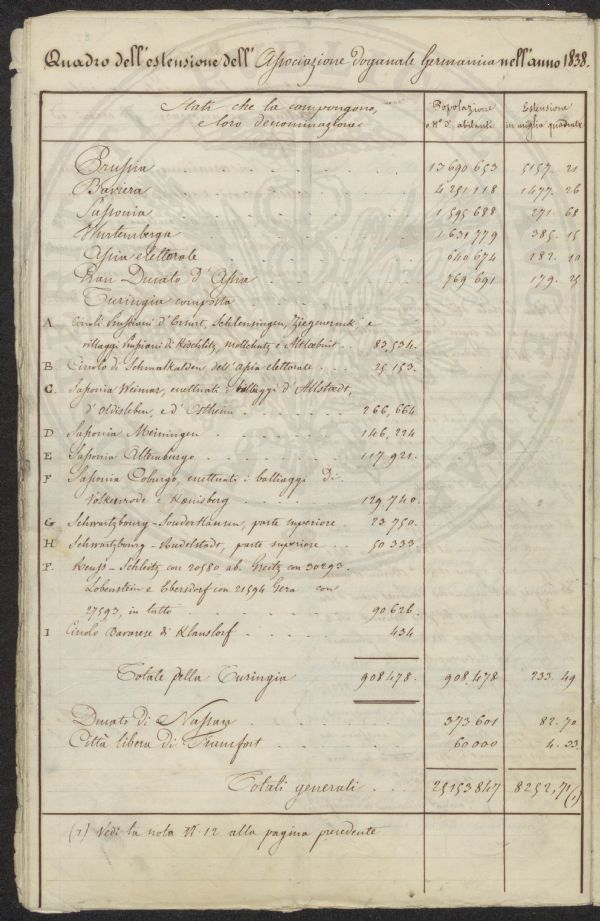 Quadro dell'estensione dell'Associazione doganale Germanica nell'anno 1838.
Stati che la compongono, e loro denominazione
Popolazione o N.° d'abitanti
Estensione in miglia quadrate
Prussia 13 690 653 5157. 21
Baviera 4 251 118 1477. 26
Sassonia 1 595 688 271. 68
Wurtemberga 1 631 779 385. 15
Assia elettorale 640 674 182. 10
Gran Ducato d'Assia 769 691 179. 25
Turingia composta
A Circoli Prussiani d'Erfurt, Schleusingen, Ziegenruck e
villaggi Prussiani di Kischlitz, Mollchutz e Abtlobnit 83,534.
B Circolo di Schmalkalden dell'Assia elettorale 25 153.
C Sassonia Weimar, eccettuati i baliaggi d'Allstaedt,
d'Oldisleben, e d'Ostheim 266,664
D Sassonia Meiningen 146,224
E Sassonia Altemburgo 117 921.
F Sassonia Coburgo, eccettuati i baliaggi di
Volkenrode e Kœnisberg 129 740.
G Schwartzbourg-Sondershausen, parte superiore 23 750.
H Schwartzbourg-Rudelstadt, parte superiore 50 333
F. Reuss-Schleitz con 20580 ab. Greitz con 30293.
Lobenstein e Ebersdorf con 21594 Gera con
27593, in tutto 90 626.
I Circolo Bavarese di Klausdorf 434
Totale della Turingia 908 478. 908.478 233. 49
Ducato di Nassau 373 601 82. 70
Città libera di Francfort 60 000 4. 33
Totali generali 25 153 847 8252,71 (1)
(1) Vedi la nota N. 12 alla pagina precedente